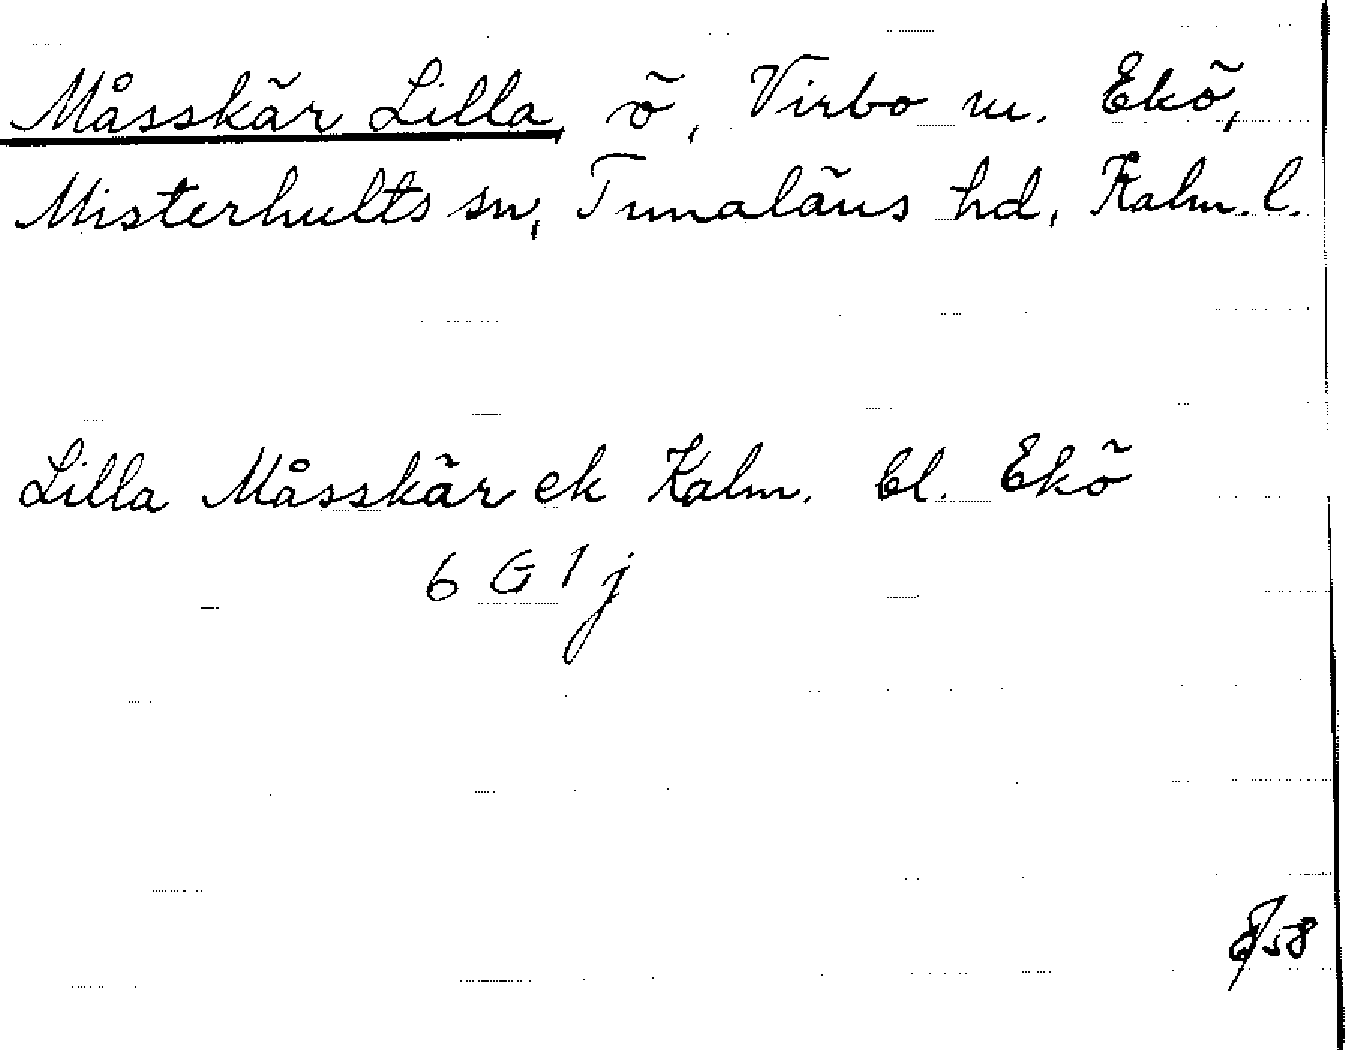 Måsskär Lilla, ö, Virbo m. Ekö,
Misterhults sn, Tunaläns hd, Kalm. l.
Lilla Måsskär ek Kalm. bl. Ekö
6 G 1 j
58